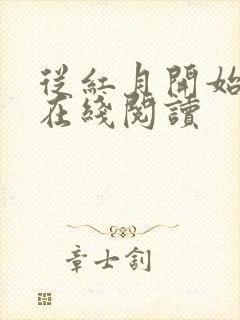 從紅月開始
在綫閱讀
章士釗